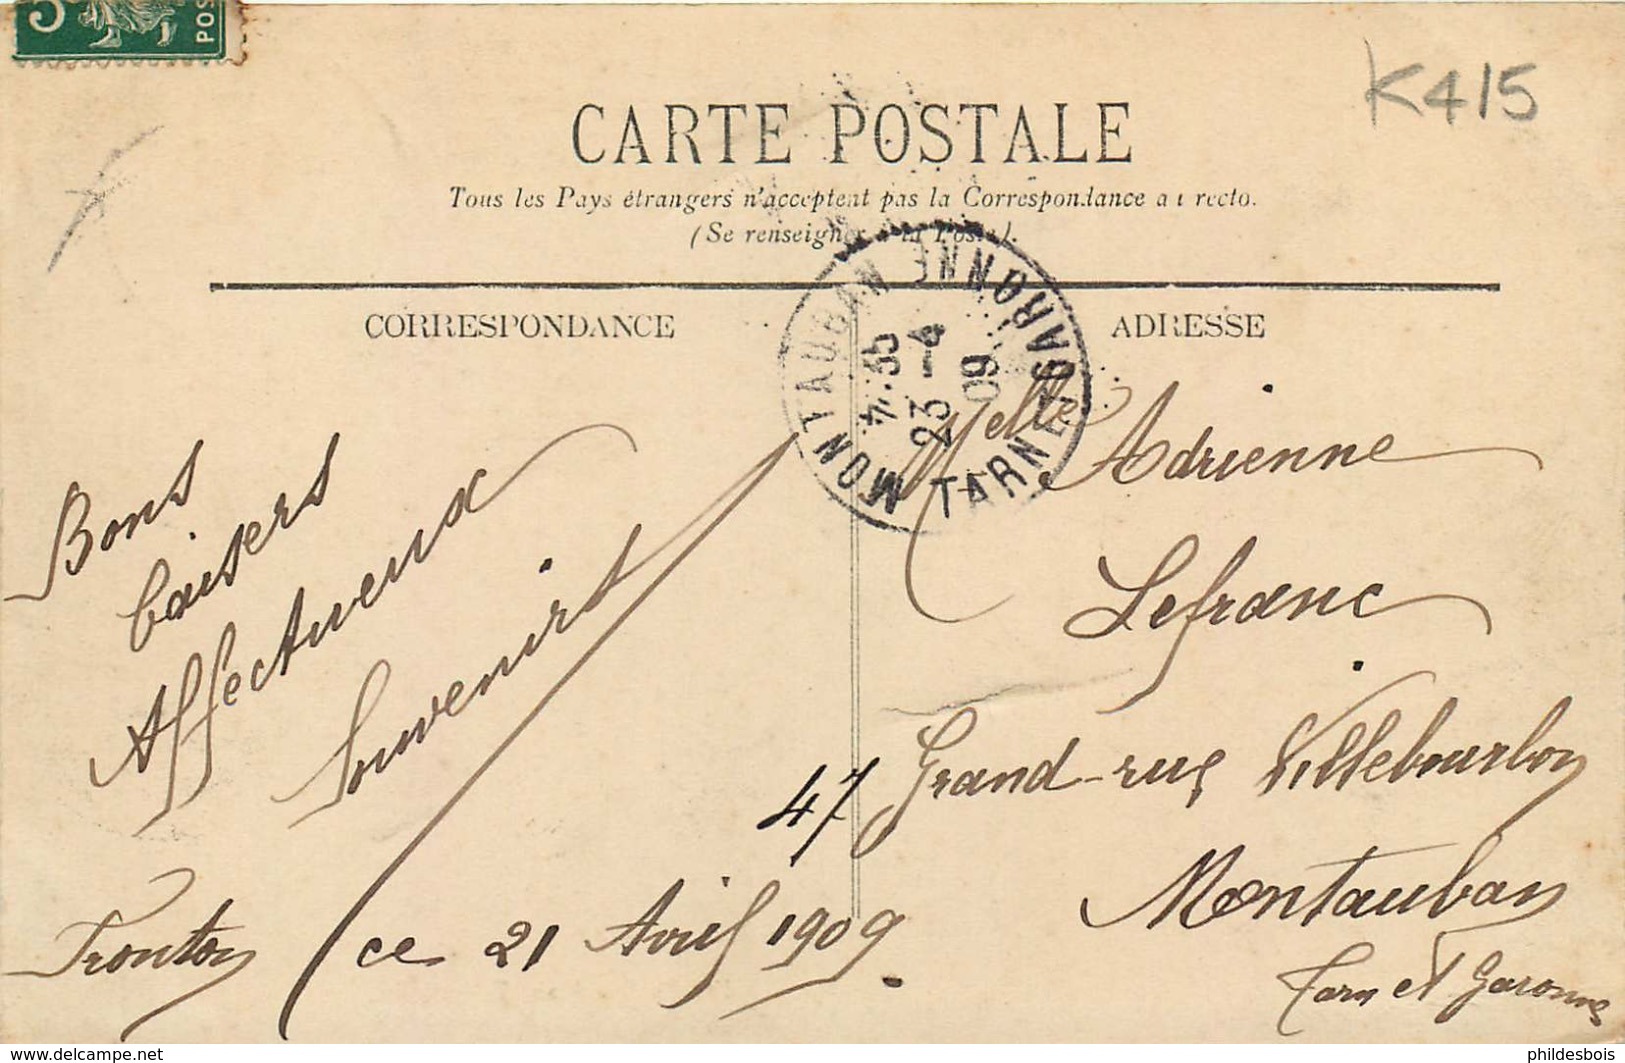 5
POS
K415
CARTE POSTALE
Tous les Pays étrangers n'acceptent pas la Correspondance au recto.
(Se renseigner à la Poste).
CORRESPONDANCE
ADRESSE
MONTAUBAN
TARN-ET-GARONNE
4 35
23 -4
09
Bons
baisers
Affectueux
Souvenirs
Fronton ce 21 Avril 1909.
Melle Adrienne
Lefranc
47 Grand-rue Villebourbon
Montauban
Tarn et Garonne
www.delcampe.net
phildesbois